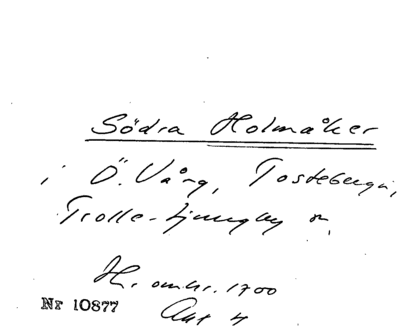 Södra Holmåker
i Ö. Vång, Tosteberga,
Trolle-Ljungby
H. omkr. 1700
Nr 10877